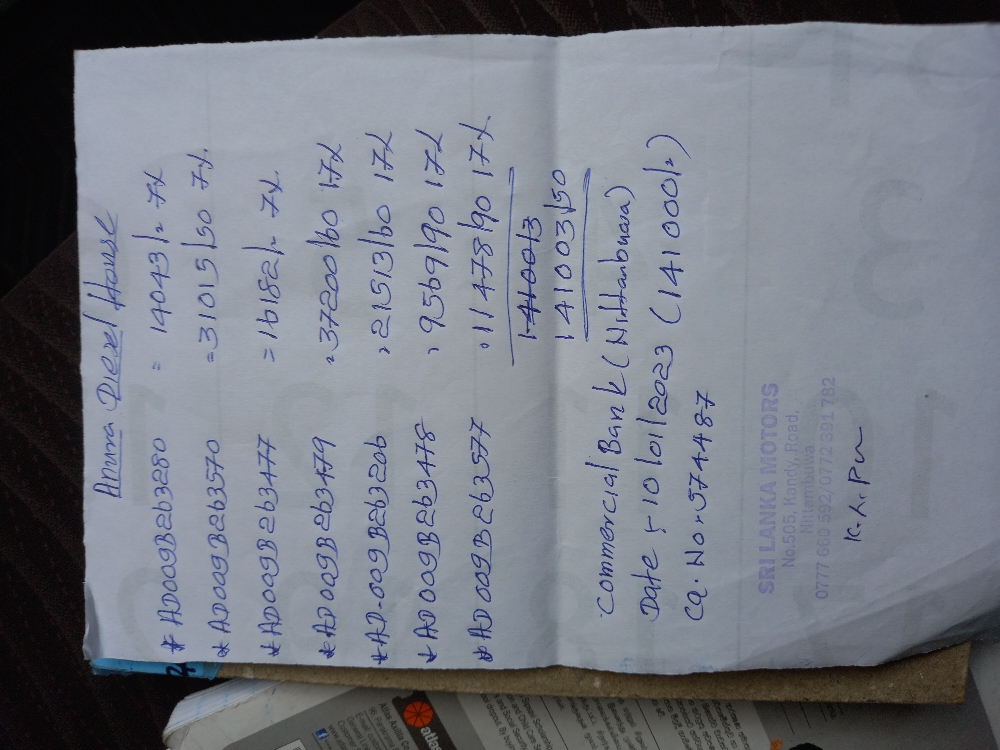 Anura Diesel House
* AD009B263280 = 14043/= 7%
* AD009B263570 = 31015/50 7%
* AD009B263477 = 16182/= 7%
* AD009B263479 = 37200/60 17%
* AD-009B263206 = 21513/60 17%
* AD009B263478 = 9569/90 17%
* AD009B263577 = 11478/90 17%
141003/50
Commercial Bank (Nittambuwa)
Date : 10/01/2023 (141000/=)
CQ. No : 574487
SRI LANKA MOTORS
No.505, Kandy, Road,
Nittambuwa
0777 660 592/0772 391 782
atlas